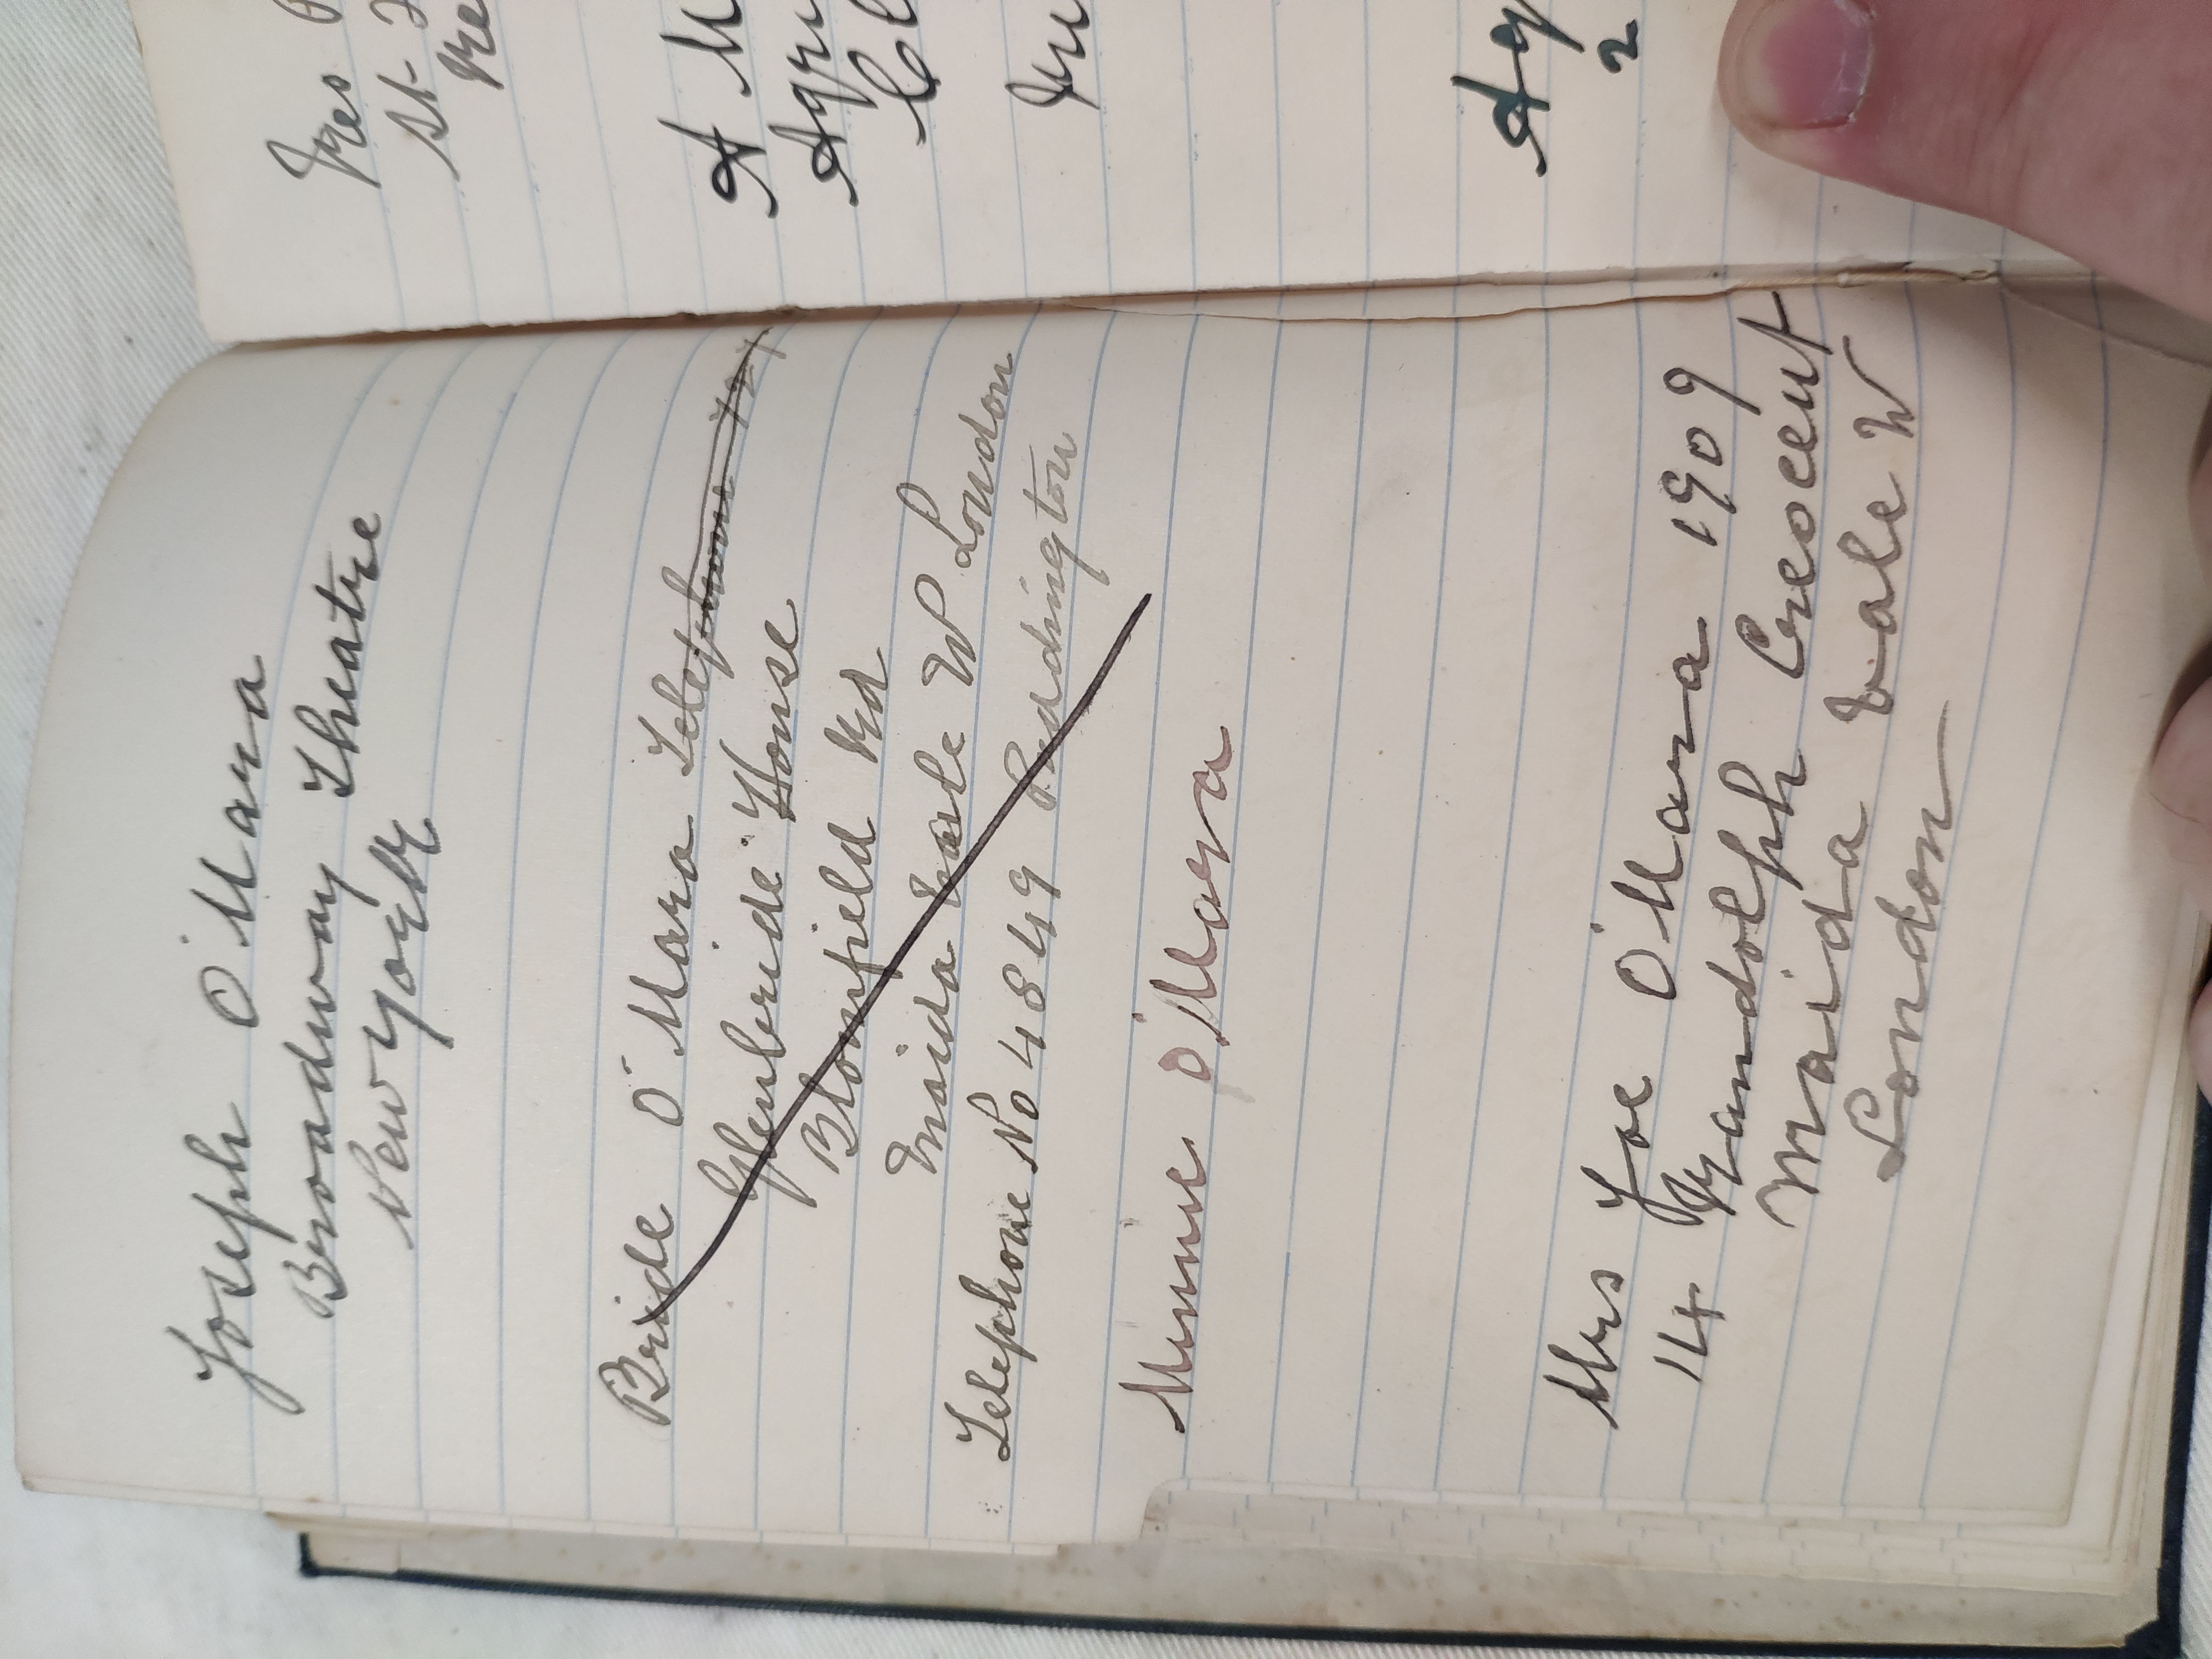 Joseph O'Mara
Broadway Theatre
New York
Bride O'Mara Telephone 727
Glenbride House
Blomfield Rd
Maida Vale W London
Telephone No 4849 Paddington
Minnie O'Mara
Mrs Joe O'Mara 1909
14 Randolph Crescent
Maida Vale W
London
A M
Agru
2